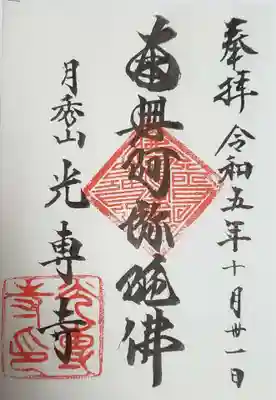 奉拝 令和五年十月廿一日
南無阿弥陀佛
月秀山 光専寺
光専寺印